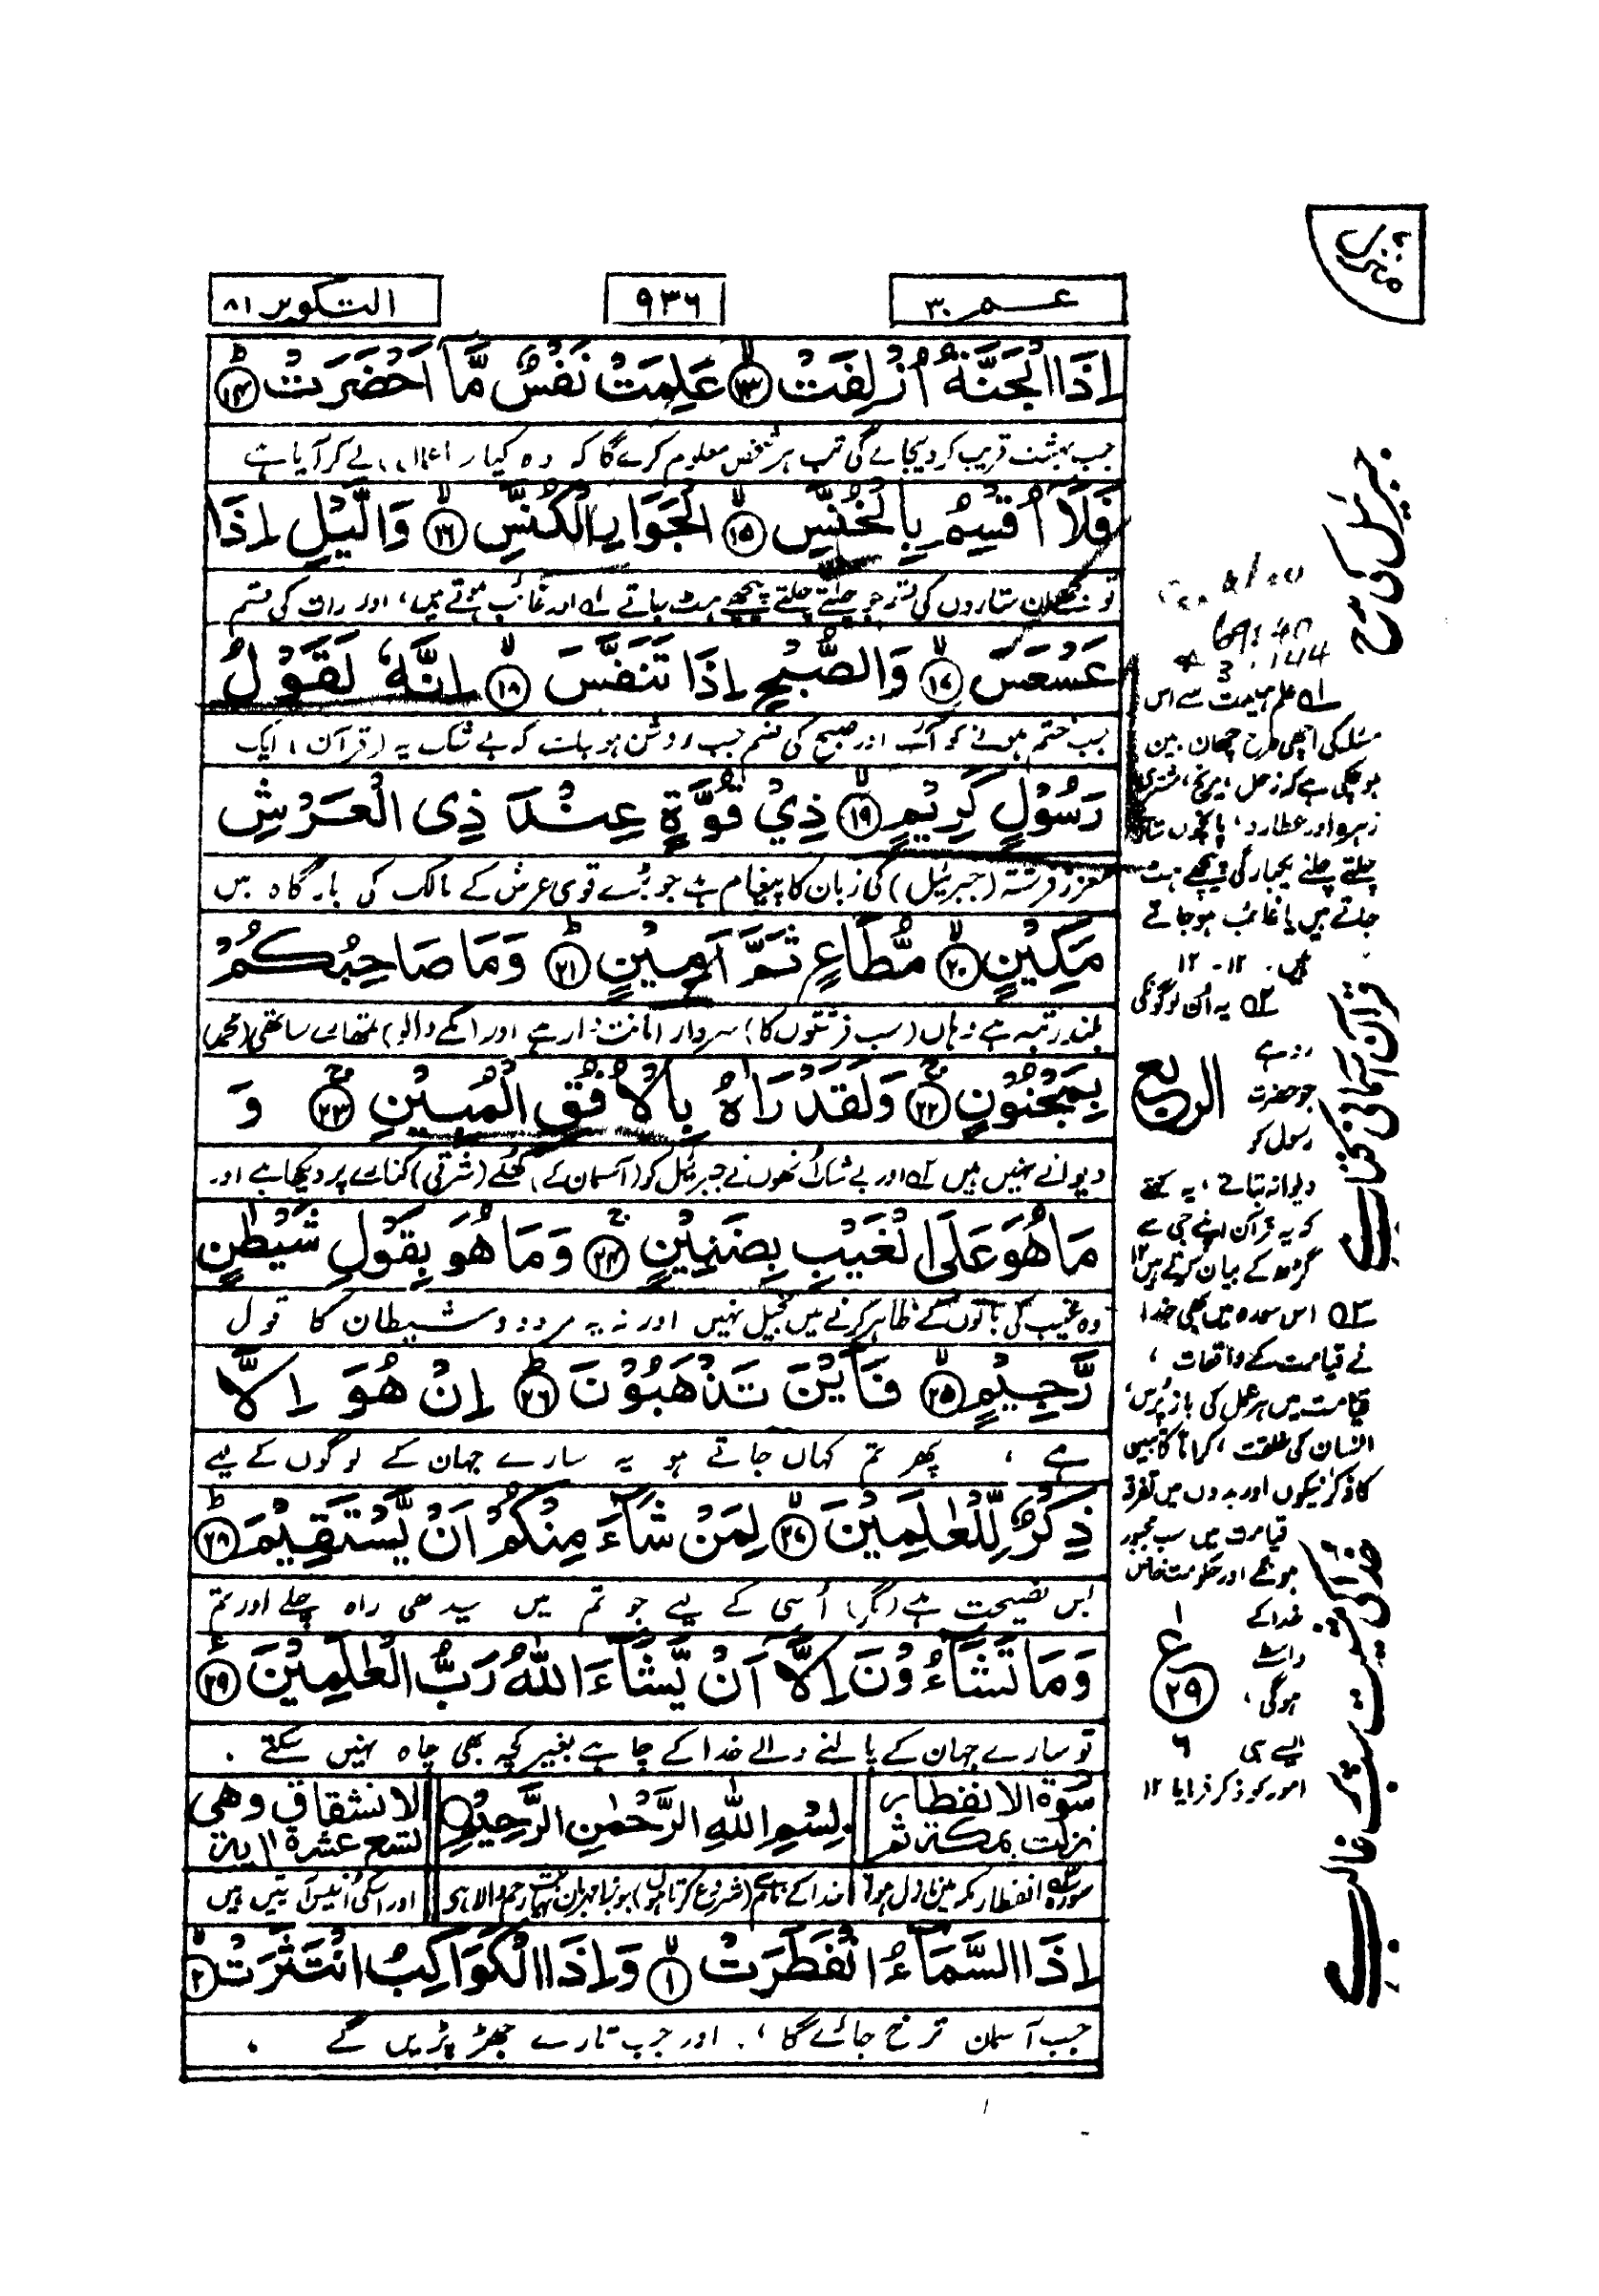 منزل ۷
عمّ ۳۰
۹۳۶
التکویر ۸۱
اِذَا الْجَنَّةُ اُزْلِفَتْ ۱۳ عَلِمَتْ نَفْسٌ مَّاۤ اَحْضَرَتْ ۱۴
جب بہشت قریب کر دیجائے گی تب ہر شخص معلوم کرے گا کہ وہ کیا (اعمال) لے کر آیا ہے
فَلَاۤ اُقْسِمُ بِالْخُنَّسِ ۱۵ الْجَوَارِ الْكُنَّسِ ۱۶ وَالَّيْلِ اِذَا
تو مجھے ان ستاروں کی قسم جو چلتے چلتے پیچھے ہٹ جاتے ۱ اور غائب ہوتے ہیں، اور رات کی قسم
عَسْعَسَ ۱۷ وَالصُّبْحِ اِذَا تَنَفَّسَ ۱۸ اِنَّهٗ لَقَوْلُ
جب ختم ہونے کو آئے اور صبح کی قسم جب روشن ہو جائے کہ بے شک یہ (قرآن) ایک
رَسُوْلٍ كَرِيْمٍ ۱۹ ذِيْ قُوَّةٍ عِنْدَ ذِى الْعَرْشِ
معزز فرشتہ (جبرئیل) کی زبان کا پیغام ہے جو بڑے قوی عرش کے مالک کی بارگاہ میں
مَكِيْنٍ ۲۰ مُّطَاعٍ ثَمَّ اَمِيْنٍ ۲۱ وَمَا صَاحِبُكُمْ
بلند رتبہ ہے وہاں (سب فرشتوں کا) سردار امانت دار ہے اور (مکے والو) تمھارے ساتھی (محمد)
بِمَجْنُوْنٍ ۲۲ وَلَقَدْ رَاٰهُ بِالْاُفُقِ الْمُبِيْنِ ۲۳ وَ
دیوانے نہیں ہیں ۲ اور بے شک انھوں نے جبرئیل کو (آسمان کے) کھلے (شرقی) کنارے پر دیکھا ہے اور
مَا هُوَ عَلَى الْغَيْبِ بِضَنِيْنٍ ۲۴ وَمَا هُوَ بِقَوْلِ شَيْطٰنٍ
وہ غیب کی باتوں کے ظاہر کرنے میں بخیل نہیں اور نہ یہ مردود شیطان کا قول
رَّجِيْمٍ ۲۵ فَاَيْنَ تَذْهَبُوْنَ ۲۶ اِنْ هُوَ اِلَّا
ہے، پھر تم کہاں جاتے ہو یہ سارے جہان کے لوگوں کے لیے
ذِكْرٌ لِّلْعٰلَمِيْنَ ۲۷ لِمَنْ شَآءَ مِنْكُمْ اَنْ يَّسْتَقِيْمَ ۲۸
بس نصیحت ہے (مگر) اُسی کے لیے جو تم میں سیدھی راہ چلے اور تم
وَمَا تَشَآءُوْنَ اِلَّاۤ اَنْ يَّشَآءَ اللّٰهُ رَبُّ الْعٰلَمِيْنَ ۲۹
تو سارے جہان کے پالنے والے خدا کے چاہے بغیر کچھ بھی چاہ نہیں سکتے۔
سُوْرَةُ الْاِنْفِطَارِ نزلت بمكة ثم
بِسْمِ اللّٰهِ الرَّحْمٰنِ الرَّحِيْمِ
الانشقاق وهى تسع عشرة اٰية
سورہ انفطار مکہ میں نازل ہوا
خدا کے نام سے (شروع کرتا ہوں) جو بڑا مہربان نہایت رحم والا ہے
اور اسکی اُنیس آیتیں ہیں
اِذَا السَّمَآءُ انْفَطَرَتْ ۱ وَاِذَا الْكَوَاكِبُ انْتَثَرَتْ ۲
جب آسمان ترخ جائے گا، اور جب تارے جھڑ پڑیں گے،
جبرئیل کی مدح
69:40
3:144
۱ علم ہیئت سے اس
مسئلہ کی اچھی طرح چھان بین
ہو چکی ہے کہ زحل، مریخ، مشتری
زہرہ اور عطارد، پانچوں
چلتے چلتے یکبارگی پیچھے ہٹ
جاتے ہیں یا غائب ہو جاتے
ہیں۔ ۱۲-۱۲
۲ یہ اُن لوگوں کی
رد ہے
جو حضرت
رسول کو
الربع
دیوانہ بتاتے، یہ کہتے
کہ یہ قرآن اپنے جی سے
گڑھ کے بیان کرتے ہیں ۱۲
قرآن آسمانی کتاب ہے
۳ اس سورہ میں بھی خدا
نے قیامت کے واقعات،
قیامت میں ہر عمل کی بازپُرس،
انسان کی خلقت، کراماً کاتبین
کا ذکر نیکوں اور بدوں میں تفرقہ
قیامت میں سب مجبور
ہونگے اور حکومت خاص
خدا کے
واسطے
ہوگی،
ایسے ہی
امور کو ذکر فرمایا ۱۲
۱
ع
۲۹
۶
خدا کی مشیت سب پر غالب ہے